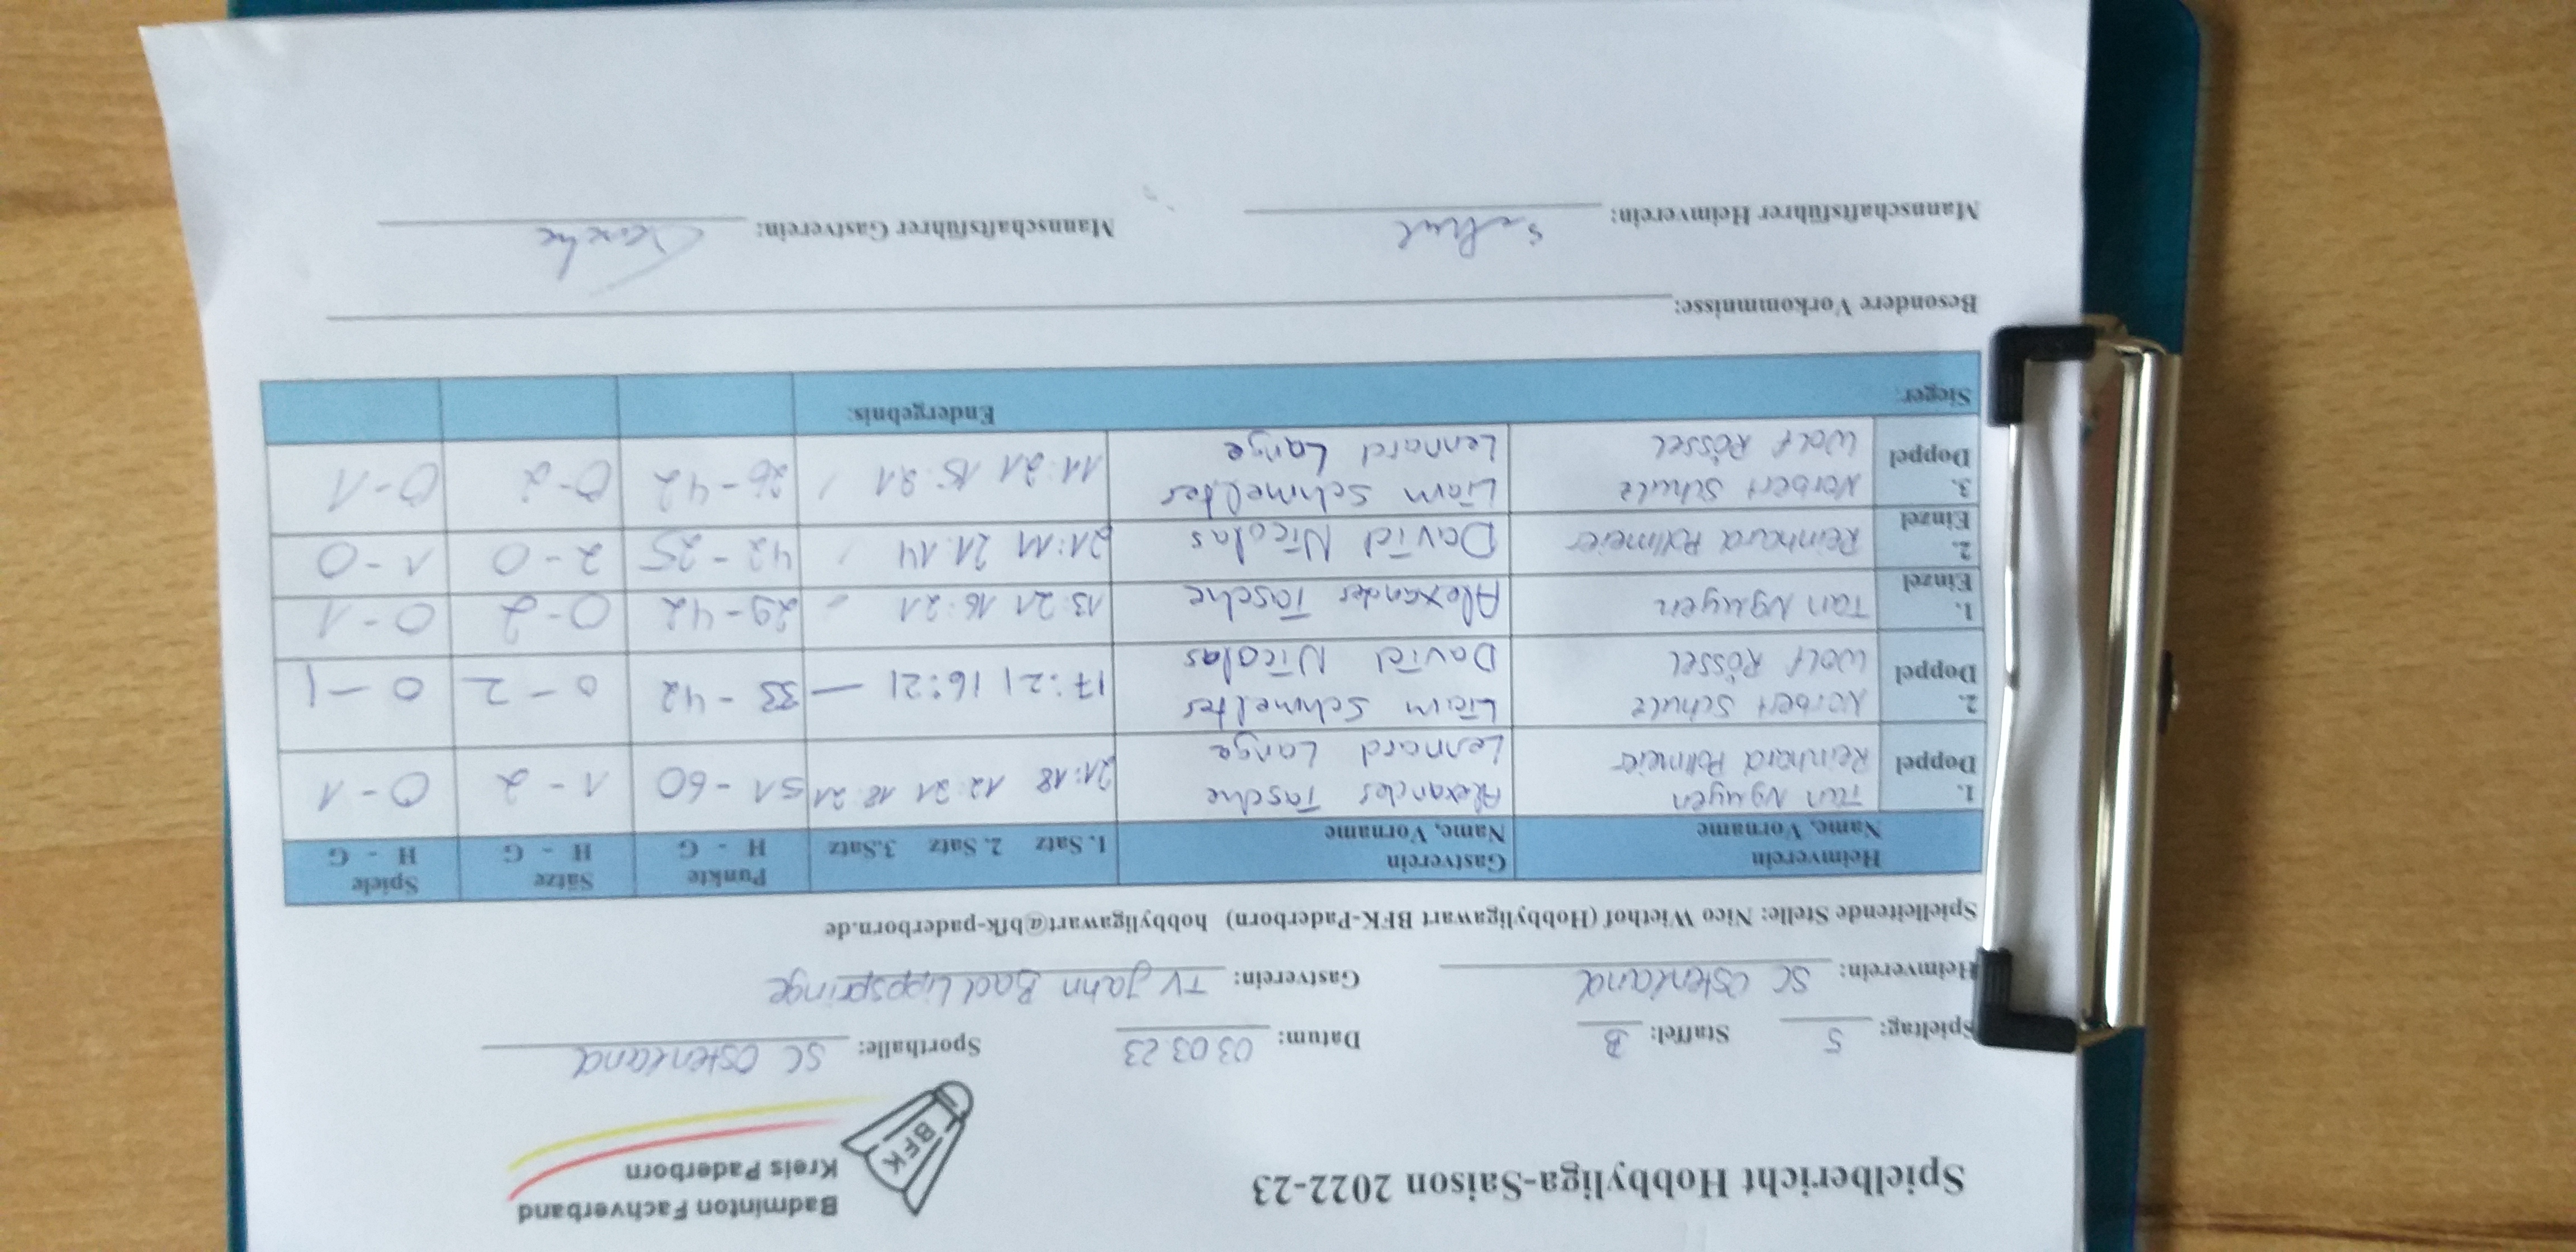 Spielbericht Hobbyliga-Saison 2022-23
Badminton Fachverband
Kreis Paderborn
BFK
Spieltag: 5 Staffel: B Datum: 03 03 23 Sporthalle: SC Ostenland
Heimverein: SC Ostenland Gastverein: TV Jahn Bad Lippspringe
Spielleitende Stelle: Nico Wiethof (Hobbyligawart BFK-Paderborn) hobbyligawart@bfk-paderborn.de
Heimverein Gastverein Punkte Sätze Spiele
Name, Vorname Name, Vorname 1. Satz 2. Satz 3.Satz H - G H - G H - G
1. Tan Nguyen Alexander Tasche 21:18 12:21 18:21 51 - 60 1 - 2 0 - 1
Doppel Reinhard Pollmeier Lennard Lange
2. Norbert Schulz Liam Schmelter 17:21 16:21 — 33 - 42 0 - 2 0 - 1
Doppel Wolf Rössel David Nicolas
1. Tan Nguyen Alexander Tasche 13:21 16:21 / 29-42 0-2 0-1
Einzel
2. Reinhard Pollmeier David Nicolas 21:11 21:14 / 42-25 2-0 1-0
Einzel
3. Norbert Schulz Liam Schmelter 11:21 15:21 / 26-42 0-2 0-1
Doppel Wolf Rössel Lennard Lange
Sieger: Endergebnis:
Besondere Vorkommnisse:
Mannschaftsführer Heimverein: Schulz Mannschaftsführer Gastverein: Tasche